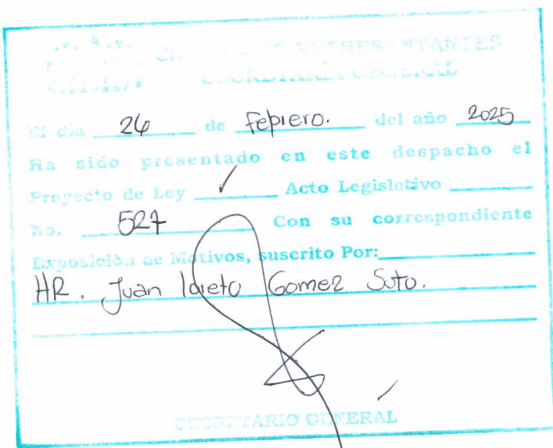 CAMARA DE REPRESENTANTES
SECRETARÍA GENERAL
El día 26 de Febrero. del año 2025
Ha sido presentado en este despacho el
Proyecto de Ley ✓ Acto Legislativo
No. 527 Con su correspondiente
Exposición de Motivos, suscrito Por:
HR. Juan Gomez Soto.
SECRETARIO GENERAL